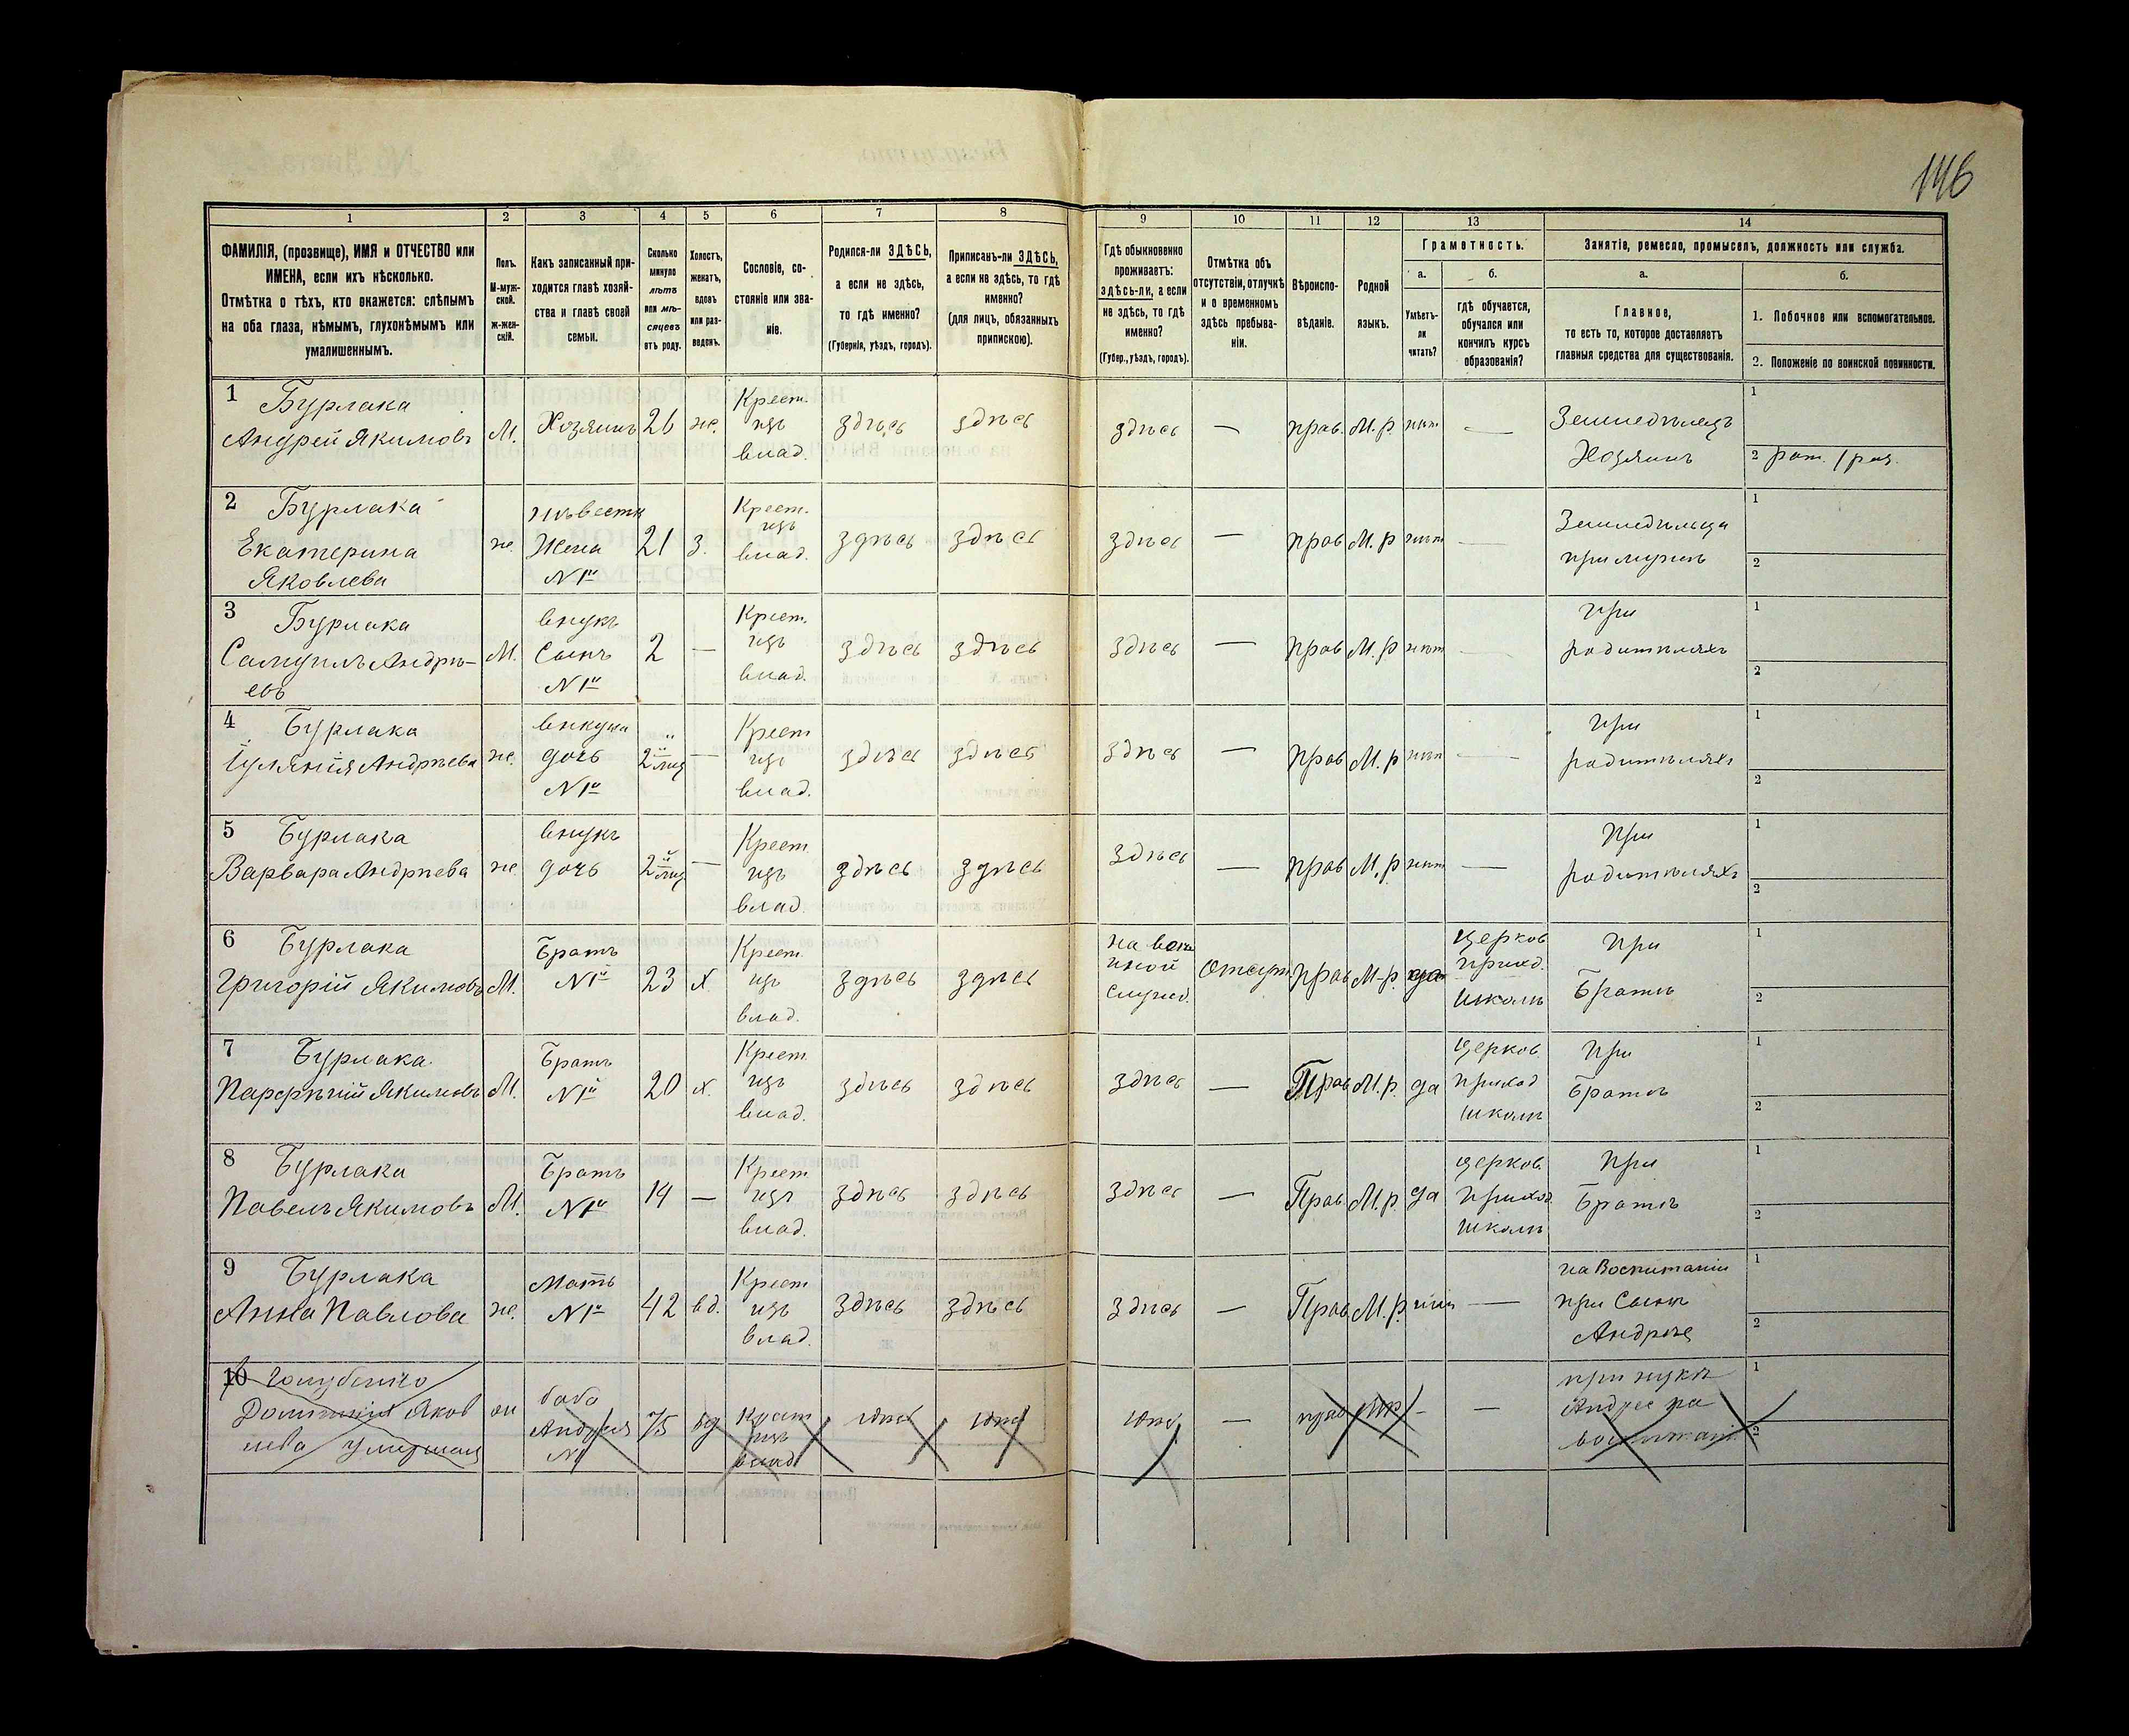 146
1
2
3
4
5
6
7
8
9
10
11
12
13
14
ФАМИЛІЯ, (прозвище), ИМЯ и ОТЧЕСТВО или
ИМЕНА, если ихъ нѣсколько.
Отмѣтка о тѣхъ, кто окажется: слѣпымъ
на оба глаза, нѣмымъ, глухонѣмымъ или
умалишеннымъ.
Полъ.
М-муж-
ской.
ж-жен-
скій.
Какъ записанный при-
ходится главѣ хозяй-
ства и главѣ своей
семьи.
Сколько
минуло
лѣтъ
или мѣ-
сяцевъ
отъ роду.
Холостъ,
женатъ,
вдовъ
или раз-
веденъ.
Сословіе, со-
стояніе или зва-
ніе.
Родился-ли ЗДѢСЬ,
а если не здѣсь,
то гдѣ именно?
(Губернія, уѣздъ, городъ).
Приписанъ-ли ЗДѢСЬ,
а если не здѣсь, то гдѣ
именно?
(для лицъ, обязанныхъ
припискою).
Гдѣ обыкновенно
проживаетъ:
здѣсь-ли, а если
не здѣсь, то гдѣ
именно?
(Губер., уѣздъ, городъ).
Отмѣтка объ
отсутствіи, отлучкѣ
и о временномъ
здѣсь пребыва-
ніи.
Вѣроиспо-
вѣданіе.
Родной
языкъ.
Грамотность.
а.
Умѣетъ-
ли
читать?
б.
гдѣ обучается,
обучался или
кончилъ курсъ
образованія?
Занятіе, ремесло, промыселъ, должность или служба.
а.
Главное,
то есть то, которое доставляетъ
главныя средства для существованія.
б.
1. Побочное или вспомогательное.
2. Положеніе по воинской повинности.
1 Бурлака
Андрей Якимовъ
М.
Хозяинъ
26
же.
Крест.
изъ
влад.
здѣсь
здѣсь
здѣсь
—
прав.
М.р.
нѣт
—
Земледѣлецъ
Хозяинъ
1
2 рат. 1 раз.
2 Бурлака
Екатерина
Яковлева
же.
нѣвестка
Жена
N 1го
21
з.
Крест.
изъ
влад.
здѣсь
здѣсь
здѣсь
—
прав
М.р
нѣт
—
Земледѣльца
при мужѣ
1
2
3 Бурлака
Самуилъ Андрѣ-
евъ
М.
внукъ
Сынъ
N 1го
2
—
Крест.
изъ
влад.
здѣсь
здѣсь
здѣсь
—
прав
М.р
нѣт
—
при
родителяхъ
1
2
4 Бурлака
Іуліянія Андрѣева
же.
внучка
дочь
N 1го
2 мец
—
Крест
изъ
влад.
здѣсь
здѣсь
здѣсь
—
прав
М.р
нѣт
—
при
родителяхъ
1
2
5 Бурлака
Варвара Андрѣева
же
внукъ
дочь
2 мец
—
Крест.
изъ
влад.
здѣсь
здѣсь
здѣсь
—
прав
М.р
нѣт
—
при
родителяхъ
1
2
6 Бурлака
Григорій Якимовъ
М.
Братъ
N 1й
23
х
Крест
изъ
влад.
здѣсь
здѣсь
на воен
ной
служб.
Отсут.
прав
М-р.
да
Церков
приход.
школѣ
при
Братѣ
1
2
7 Бурлака.
Парфѣній Якимовъ
М.
Братъ
N 1й
20
х.
Крест.
изъ
влад.
здѣсь
здѣсь
здѣсь
—
Прав
М.р.
да
церков.
приход
школѣ
при
Братѣ
1
2
8 Бурлака
Павелъ Якимовъ
М.
Братъ
N 1й
14
—
Крест
изъ
влад.
здѣсь
здѣсь
здѣсь
—
Прав
М.р.
да
церков.
приход.
школѣ
при
Братѣ
1
2
9 Бурлака
Анна Павлова
же.
Мать
N 1го
42
вд.
Крест
изъ
влад.
здѣсь
здѣсь
здѣсь
—
Прав.
М.р.
—
на Воспитаніи
при Сынѣ
Андрѣе
1
2
10 Голубенко
Яков
лева умершая
баба
Андрея
N 1
75
вд
Крест
изъ
влад
здѣсь
здѣсь
здѣсь
—
прав
МР
—
—
при нукѣ
Андрее на
воспитани
1
2